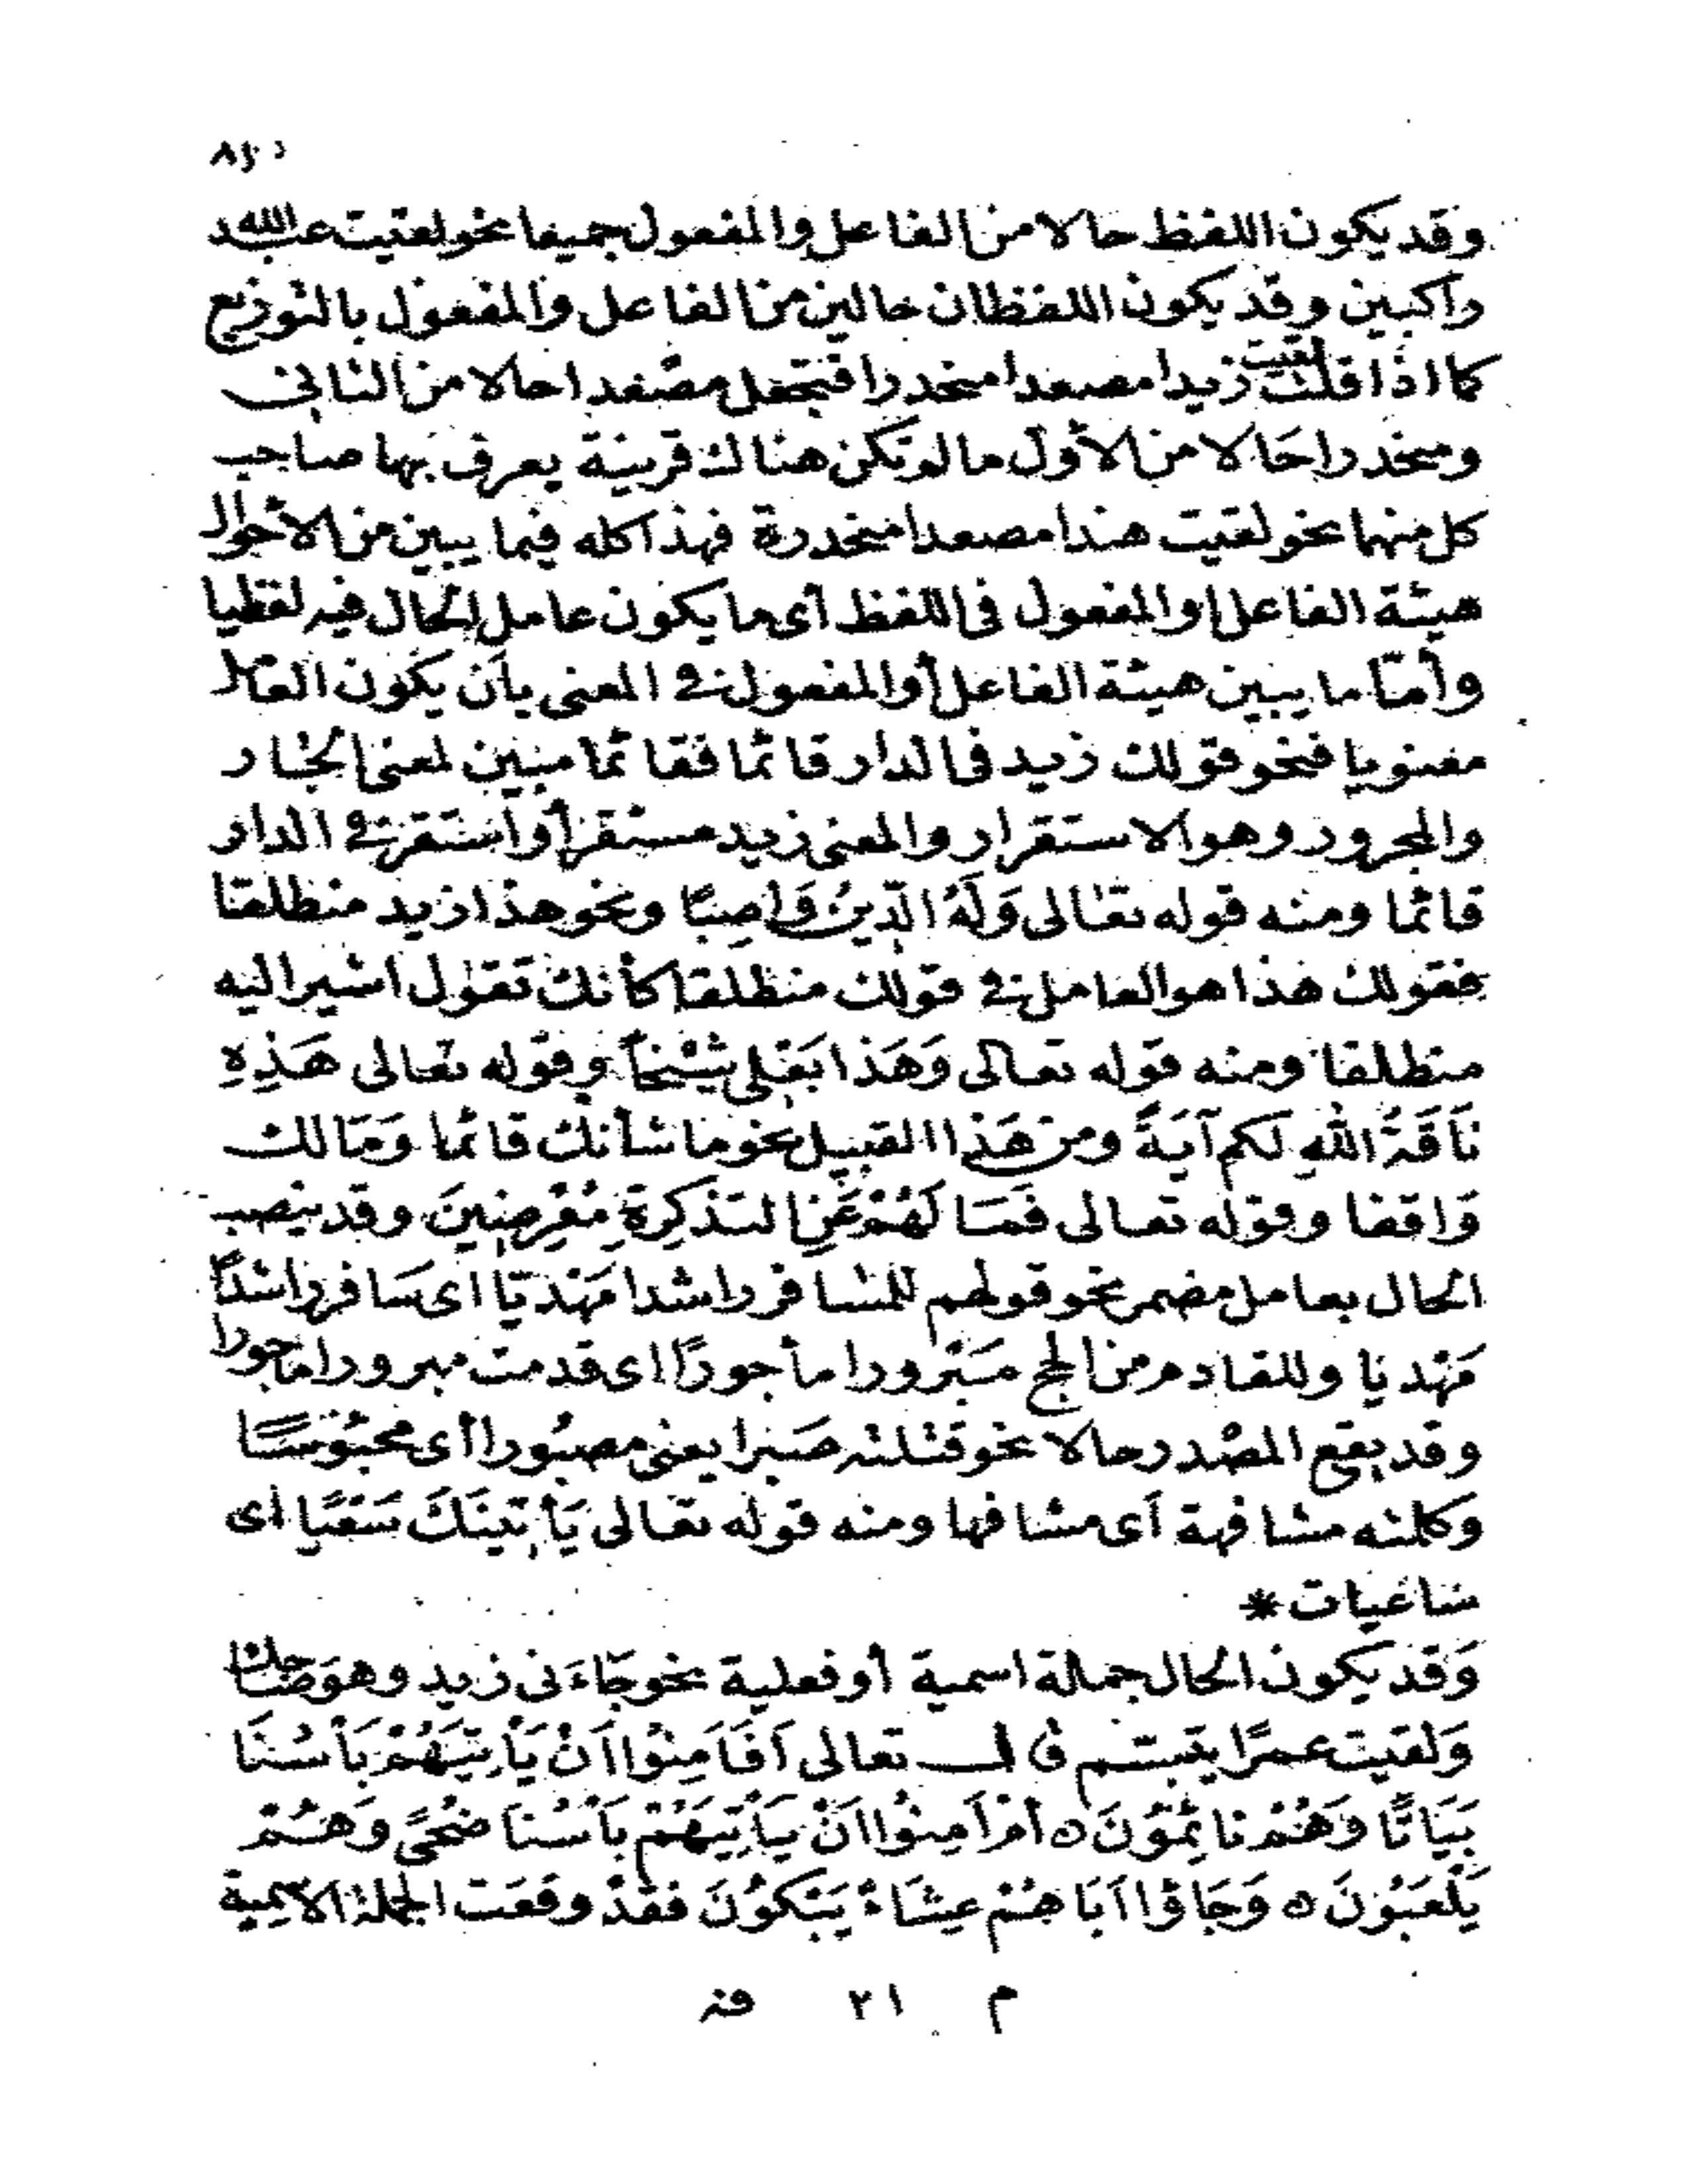 وقد يكون اللفظ حالا من الفاعل والمفعول جميعا نحو لقيت عبد الله
راكبين وقد يكون اللفظان حالين من الفاعل والمفعول بالتوزيع
كما اذا قلت لقيت زيدا مصعدا منحدرا فتجعل مصعدا حالا من الثانى
ومنحدرا حَالا من الأول ما لم تكن هناك قرينة يعرف بها صاحب
كل منهما نحو لقيت هندا مصعدا منحدرة فهذا كله فيما يبين من الأحوال
هيئة الفاعل او المفعول فى اللفظ أى ما يكون عامل الحال فيه لفظيا
وأمّا ما يبين هيئة الفاعل أو المفعول فى المعنى بأن يكون العامل
معنويا فنحو قولك زيد فى الدار قائما فقائما مبين لمعنى الجار
والمجرور وهو الاستقرار والمعنى زيد مستقر أو استقر فى الدار
قائما ومنه قوله تعالى وَلَهُ الدِّينُ وَاصِبًا ونحو هذا زيد منطلقا
فقولك هذا هو العامل فى قولك منطلقا كأنك تقول اشير اليه
منطلقا ومنه قوله تعالى وَهَذا بَعْلِى شَيْخاً وقوله تعالى هَذِهِ
نَاقَةُ اللهِ لَكم آيَةً ومن هَذا القبيل نحو ما شأنك قائما وَمَا لك
وَاقفا وقوله تعالى فَمَا لَهُمْ عَنِ التَذكِرةِ مُعْرِضِينَ وقد ينصب
الحال بعامل مضمر نحو قولهم للمسافر راشدا مَهْديّا اى سَافر راشداً
مَهْديا وللقادم من الحج مَبْرورا مأجورًا اى قدمت مبرورا مأجورا
وقد يقع المصْدر حالا نحو قتلته صَبْرا يعنى مصبُورا أى محبُوسًا
وكلمته مشافهة أى مشافها ومنه قوله تعالى يَأتِينَكَ سَعْيًا أى
ساعيات *
وَقد يكون الحال جملة اسمية أو فعلية نحو جَاءَنى زيد وهو ضاحك
وَلقيت عمرًا يتبسّم قال تعالى اَفَاَمِنُوا اَنْ يَأتِيَهُمْ بَأسُنَا
بَيَاتًا وَهُمْ نائِمُونَ ه أمْ اَمِنُوا اَنْ يَأتِيَهُمْ بَأسُنَا ضُحًى وَهُمْ
يَلْعَبُونَ ه وَجَاؤا اَبَاهُمْ عِشَاءً يَبْكُونَ فقدْ وقعَت الجملة الاسمِية
م ٢١ فن